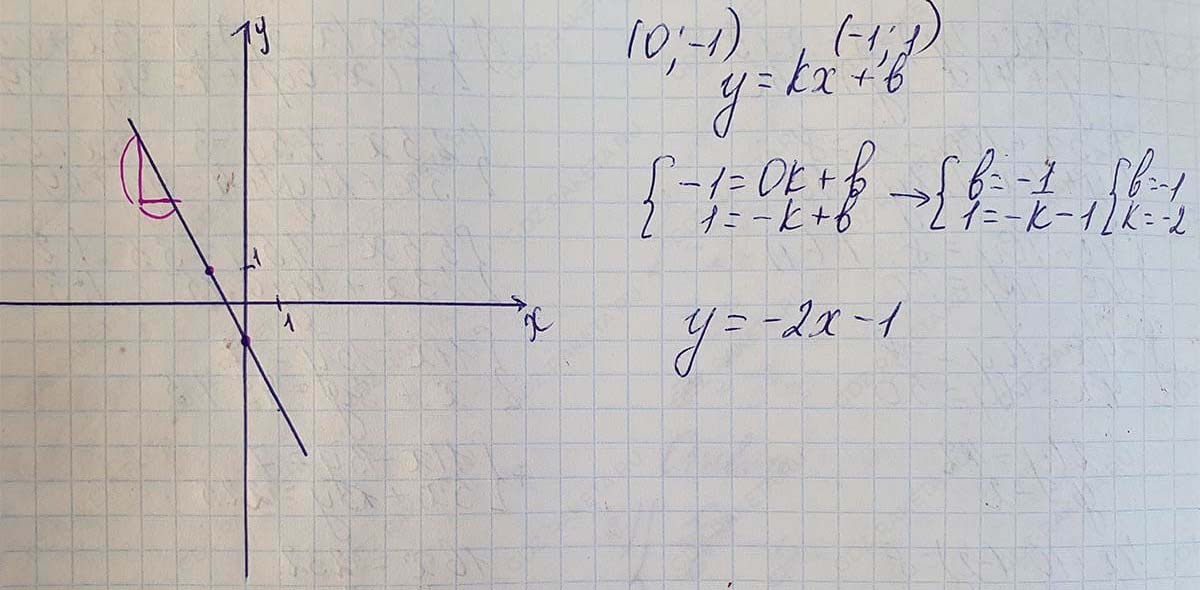 y
1
1
x
(0;-1) (-1;1)
y = kx + b
{ -1 = 0k + b → { b = -1 { b = -1
1 = -k + b 1 = -k - 1 k = -2
y = -2x - 1